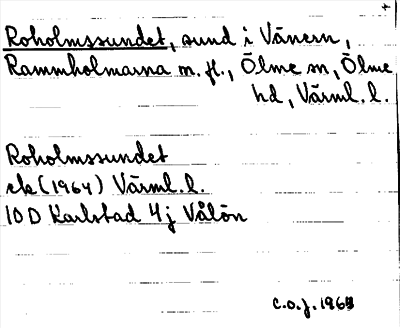 Roholmssundet, sund i Vänern,
Rammholmarna m. fl., Ölme sn, Ölme
hd, Värml. l.
Roholmssundet
ek (1964) Värml. l.
10 D Karlstad 4j Vålön
c.o.j. 1964